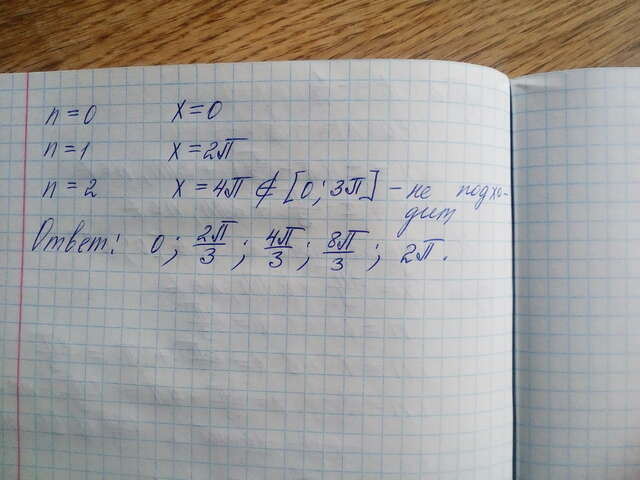 n = 0 x = 0
n = 1 x = 2π
n = 2 x = 4π ∉ [0; 3π] - не подхо-
дит
Ответ: 0; 2π/3; 4π/3; 8π/3; 2π.